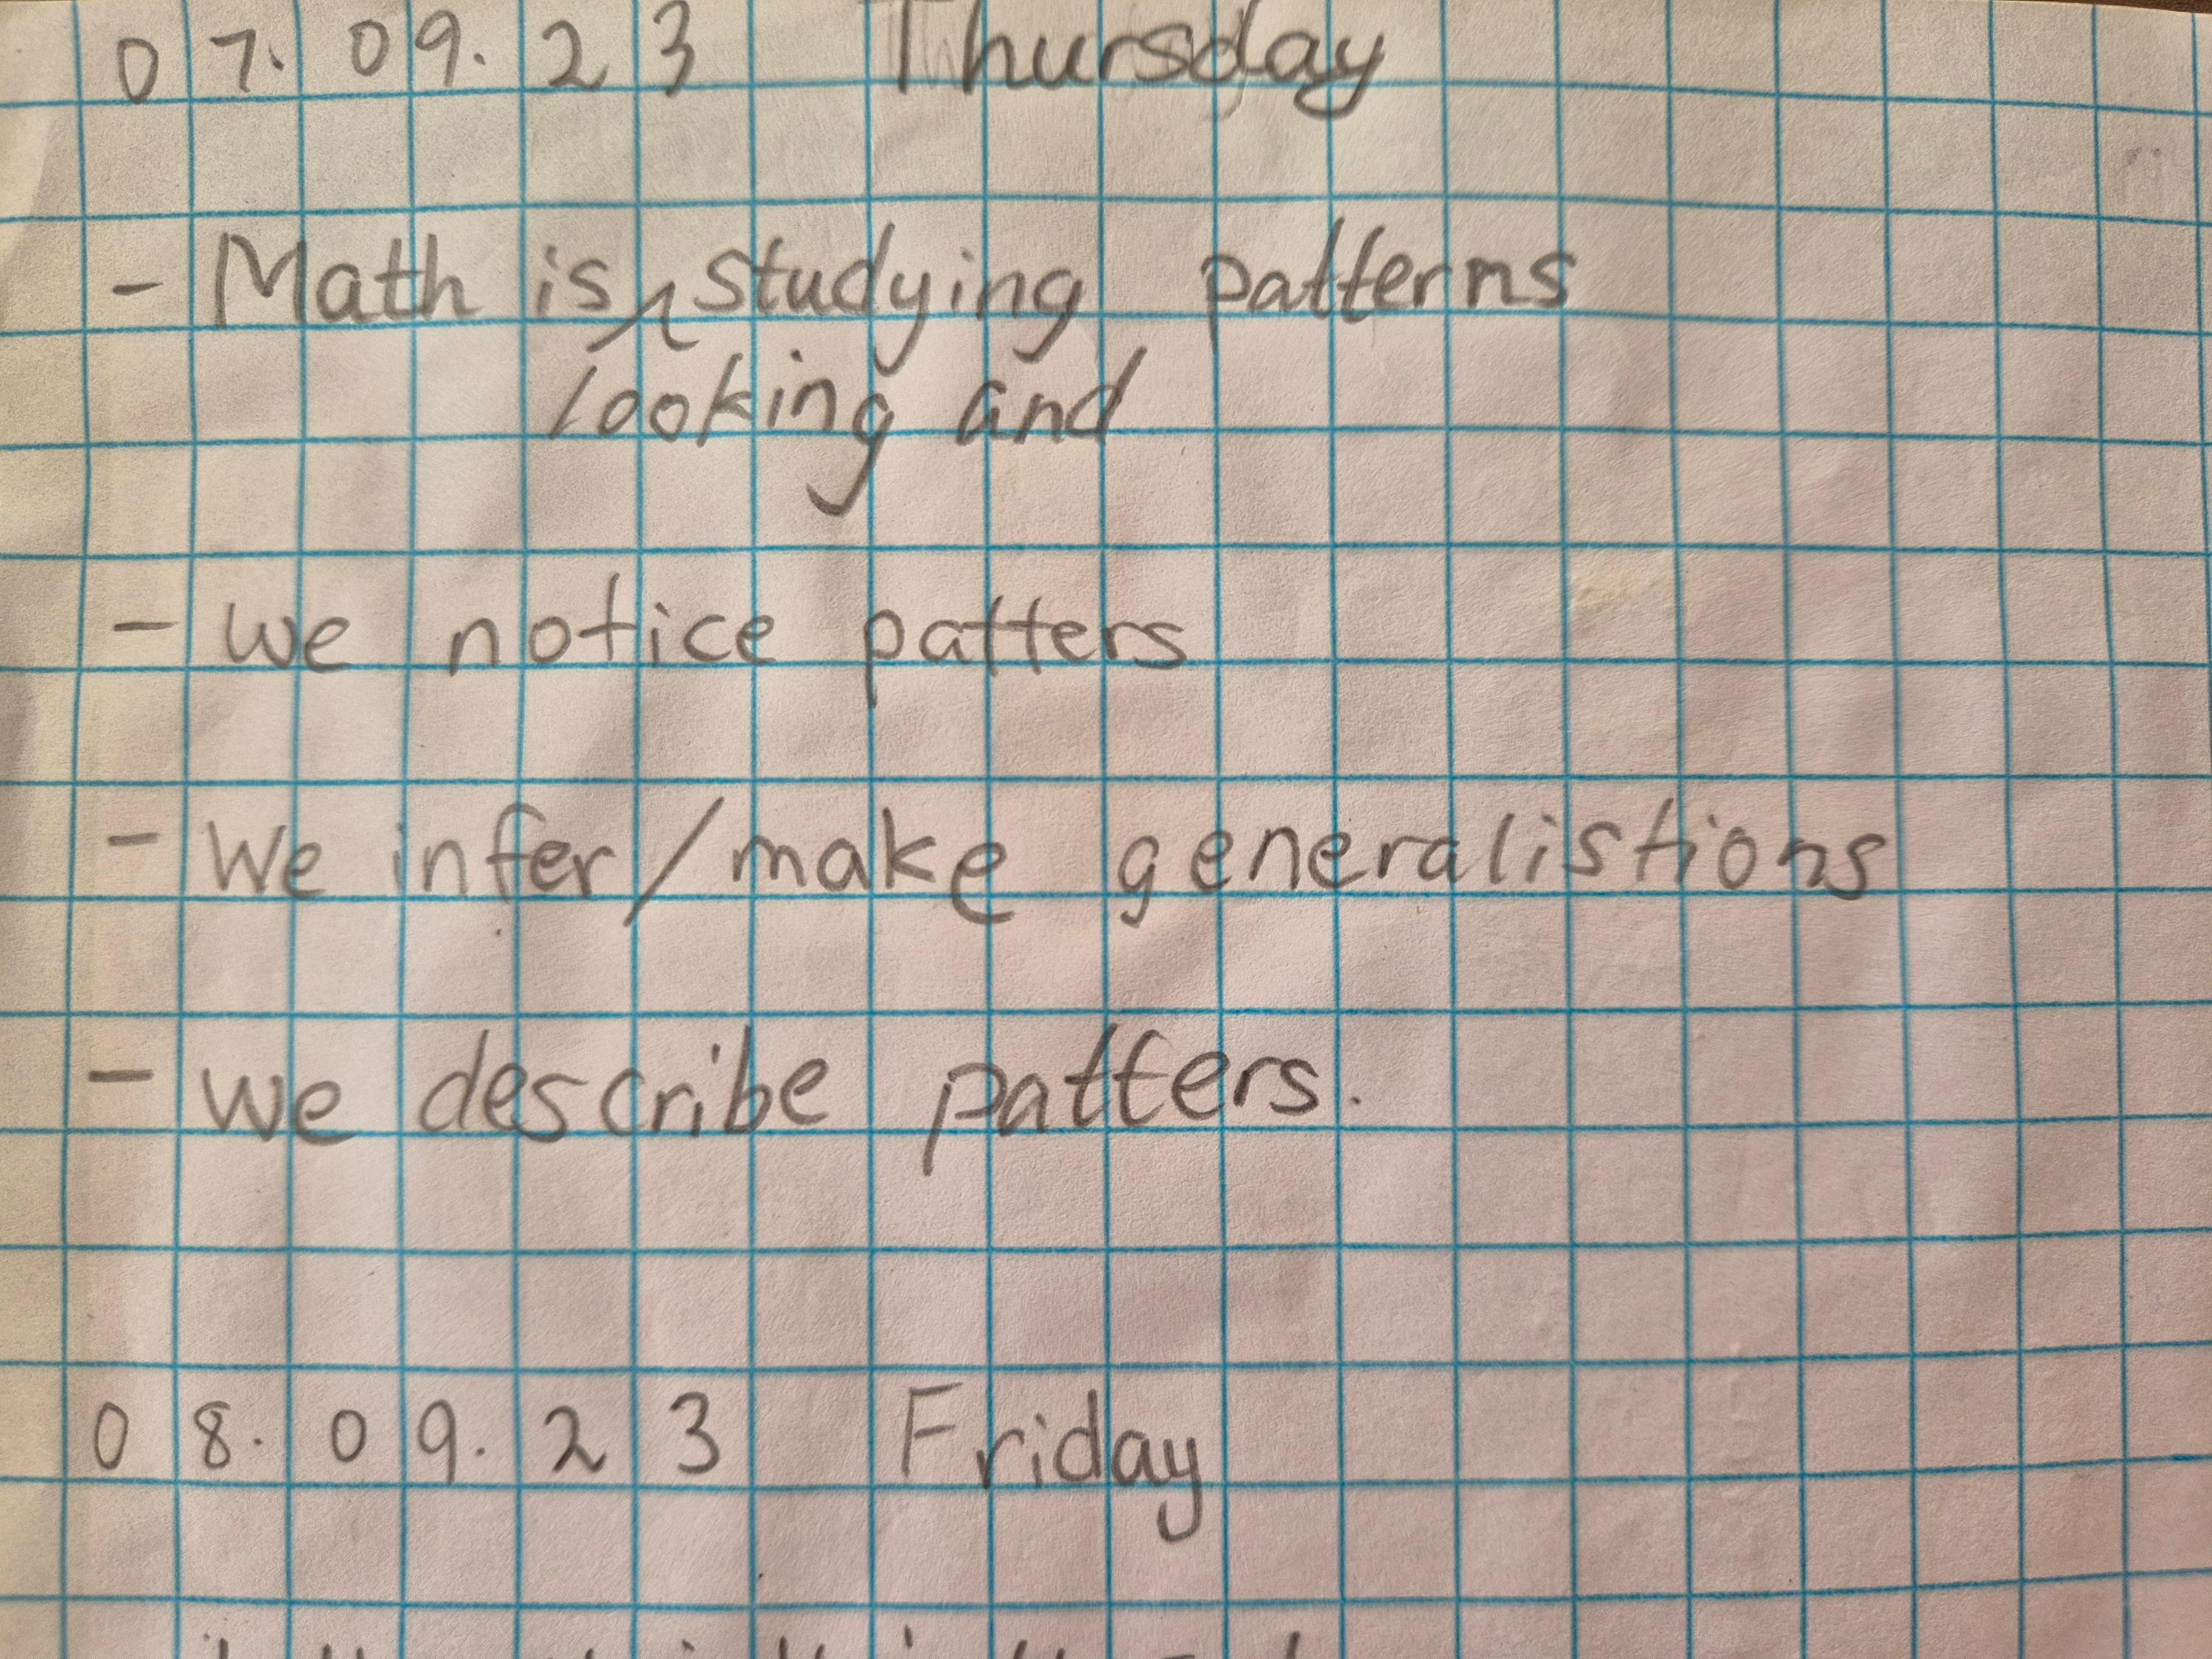 07.09.23 Thursday
- Math is studying patterns
looking and
- we notice patters
- We infer/make generalistions
- we describe patters.
08.09.23 Friday